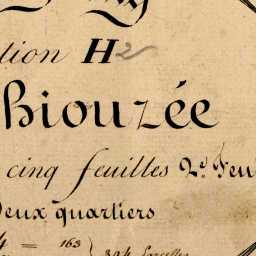 tion H2
hiouzée
cinq feuilles 2e Feu
deux quartiers
4 = 163